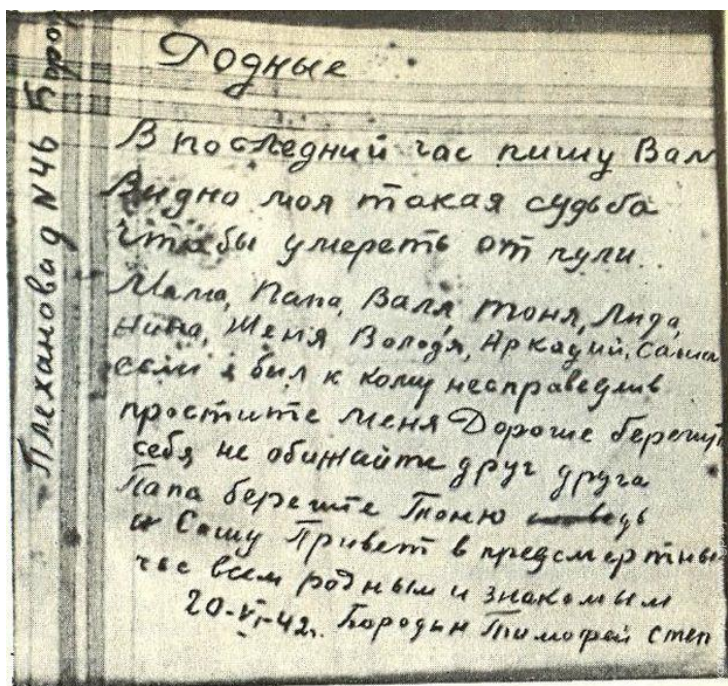 Плеханова д N46 Бород
Родные
В последний час пишу Вам
Видно моя такая судьба
чтобы умереть от пули
Мама, Папа, Валя Тоня, Лида,
Нина, Женя Володя, Аркадий, Саша
если я был к кому несправедлив
простите меня Дорогие берегите
себя, не обижайте друг друга
Папа берегите Тоню
и Сашу Привет в предсмертный
час всем родным и знакомым
20-VI-42г. Бородин Тимофей Степ